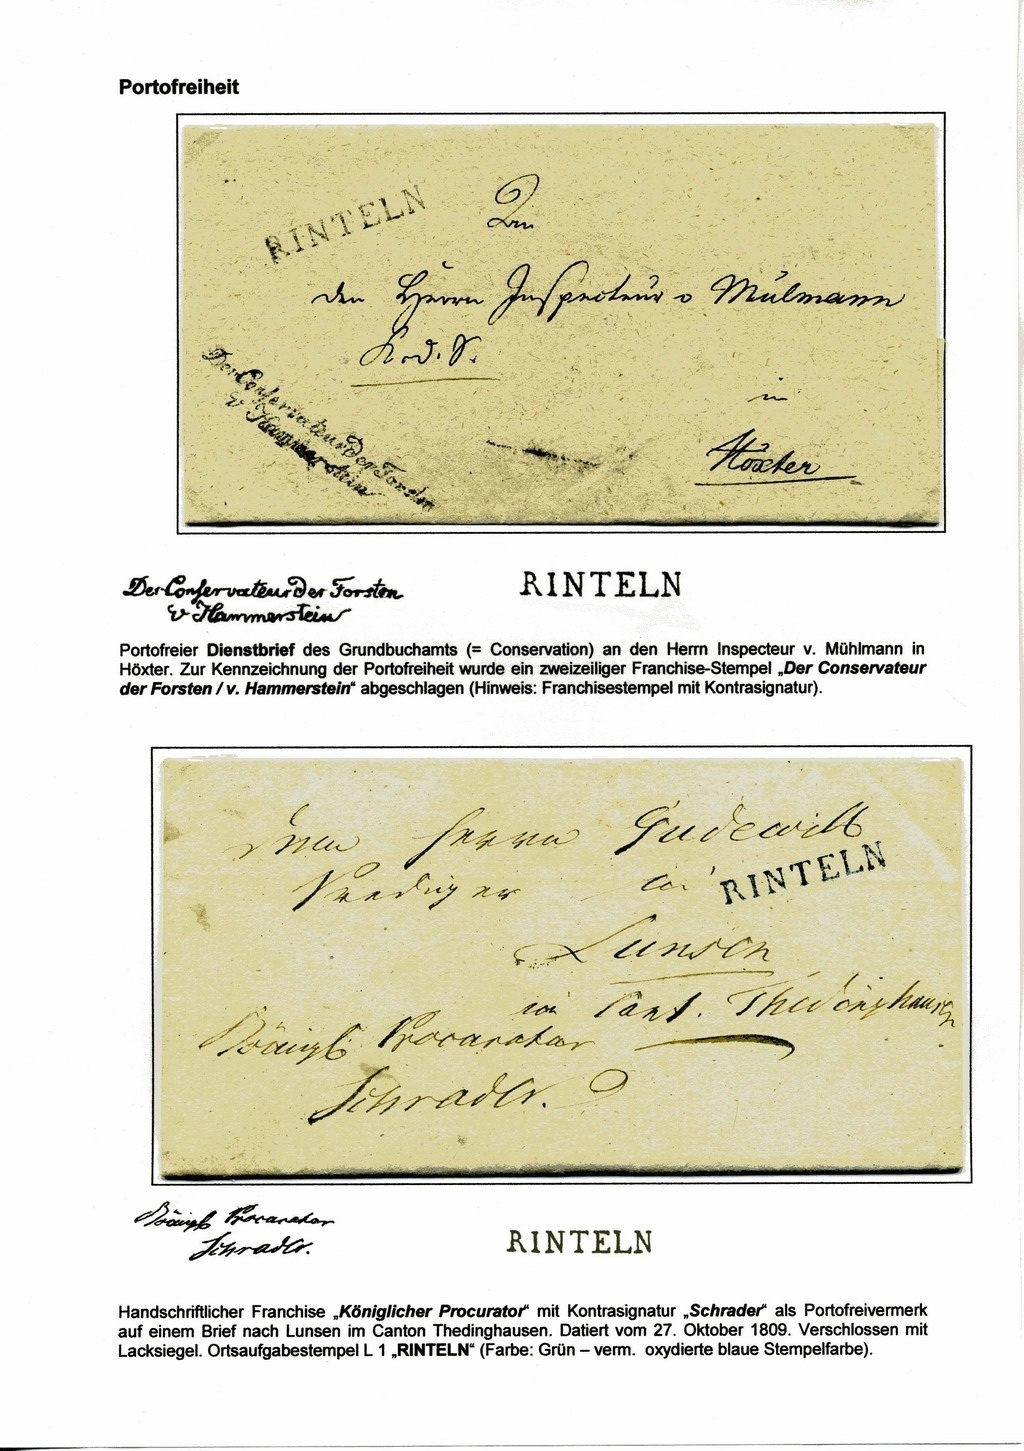 Portofreiheit
RINTELN
An
den Herrn Inspecteur v Mülmann
K. d. V.
in
Höxter
Der Conservateur Der Forsten
v Hammerstein
Der Conservateur Der Forsten
v Hammerstein
RINTELN
Portofreier Dienstbrief des Grundbuchamts (= Conservation) an den Herrn Inspecteur v. Mühlmann in
Höxter. Zur Kennzeichnung der Portofreiheit wurde ein zweizeiliger Franchise-Stempel „Der Conservateur
der Forsten / v. Hammerstein“ abgeschlagen (Hinweis: Franchisestempel mit Kontrasignatur).
Herrn Gudewill
Prediger in
RINTELN
Lunsen
im Cant. Thedinghausen
Königl Procurator
Schrader.
Königl Procurator
Schrader.
RINTELN
Handschriftlicher Franchise „Königlicher Procurator“ mit Kontrasignatur „Schrader“ als Portofreivermerk
auf einem Brief nach Lunsen im Canton Thedinghausen. Datiert vom 27. Oktober 1809. Verschlossen mit
Lacksiegel. Ortsaufgabestempel L 1 „RINTELN“ (Farbe: Grün – verm. oxydierte blaue Stempelfarbe).